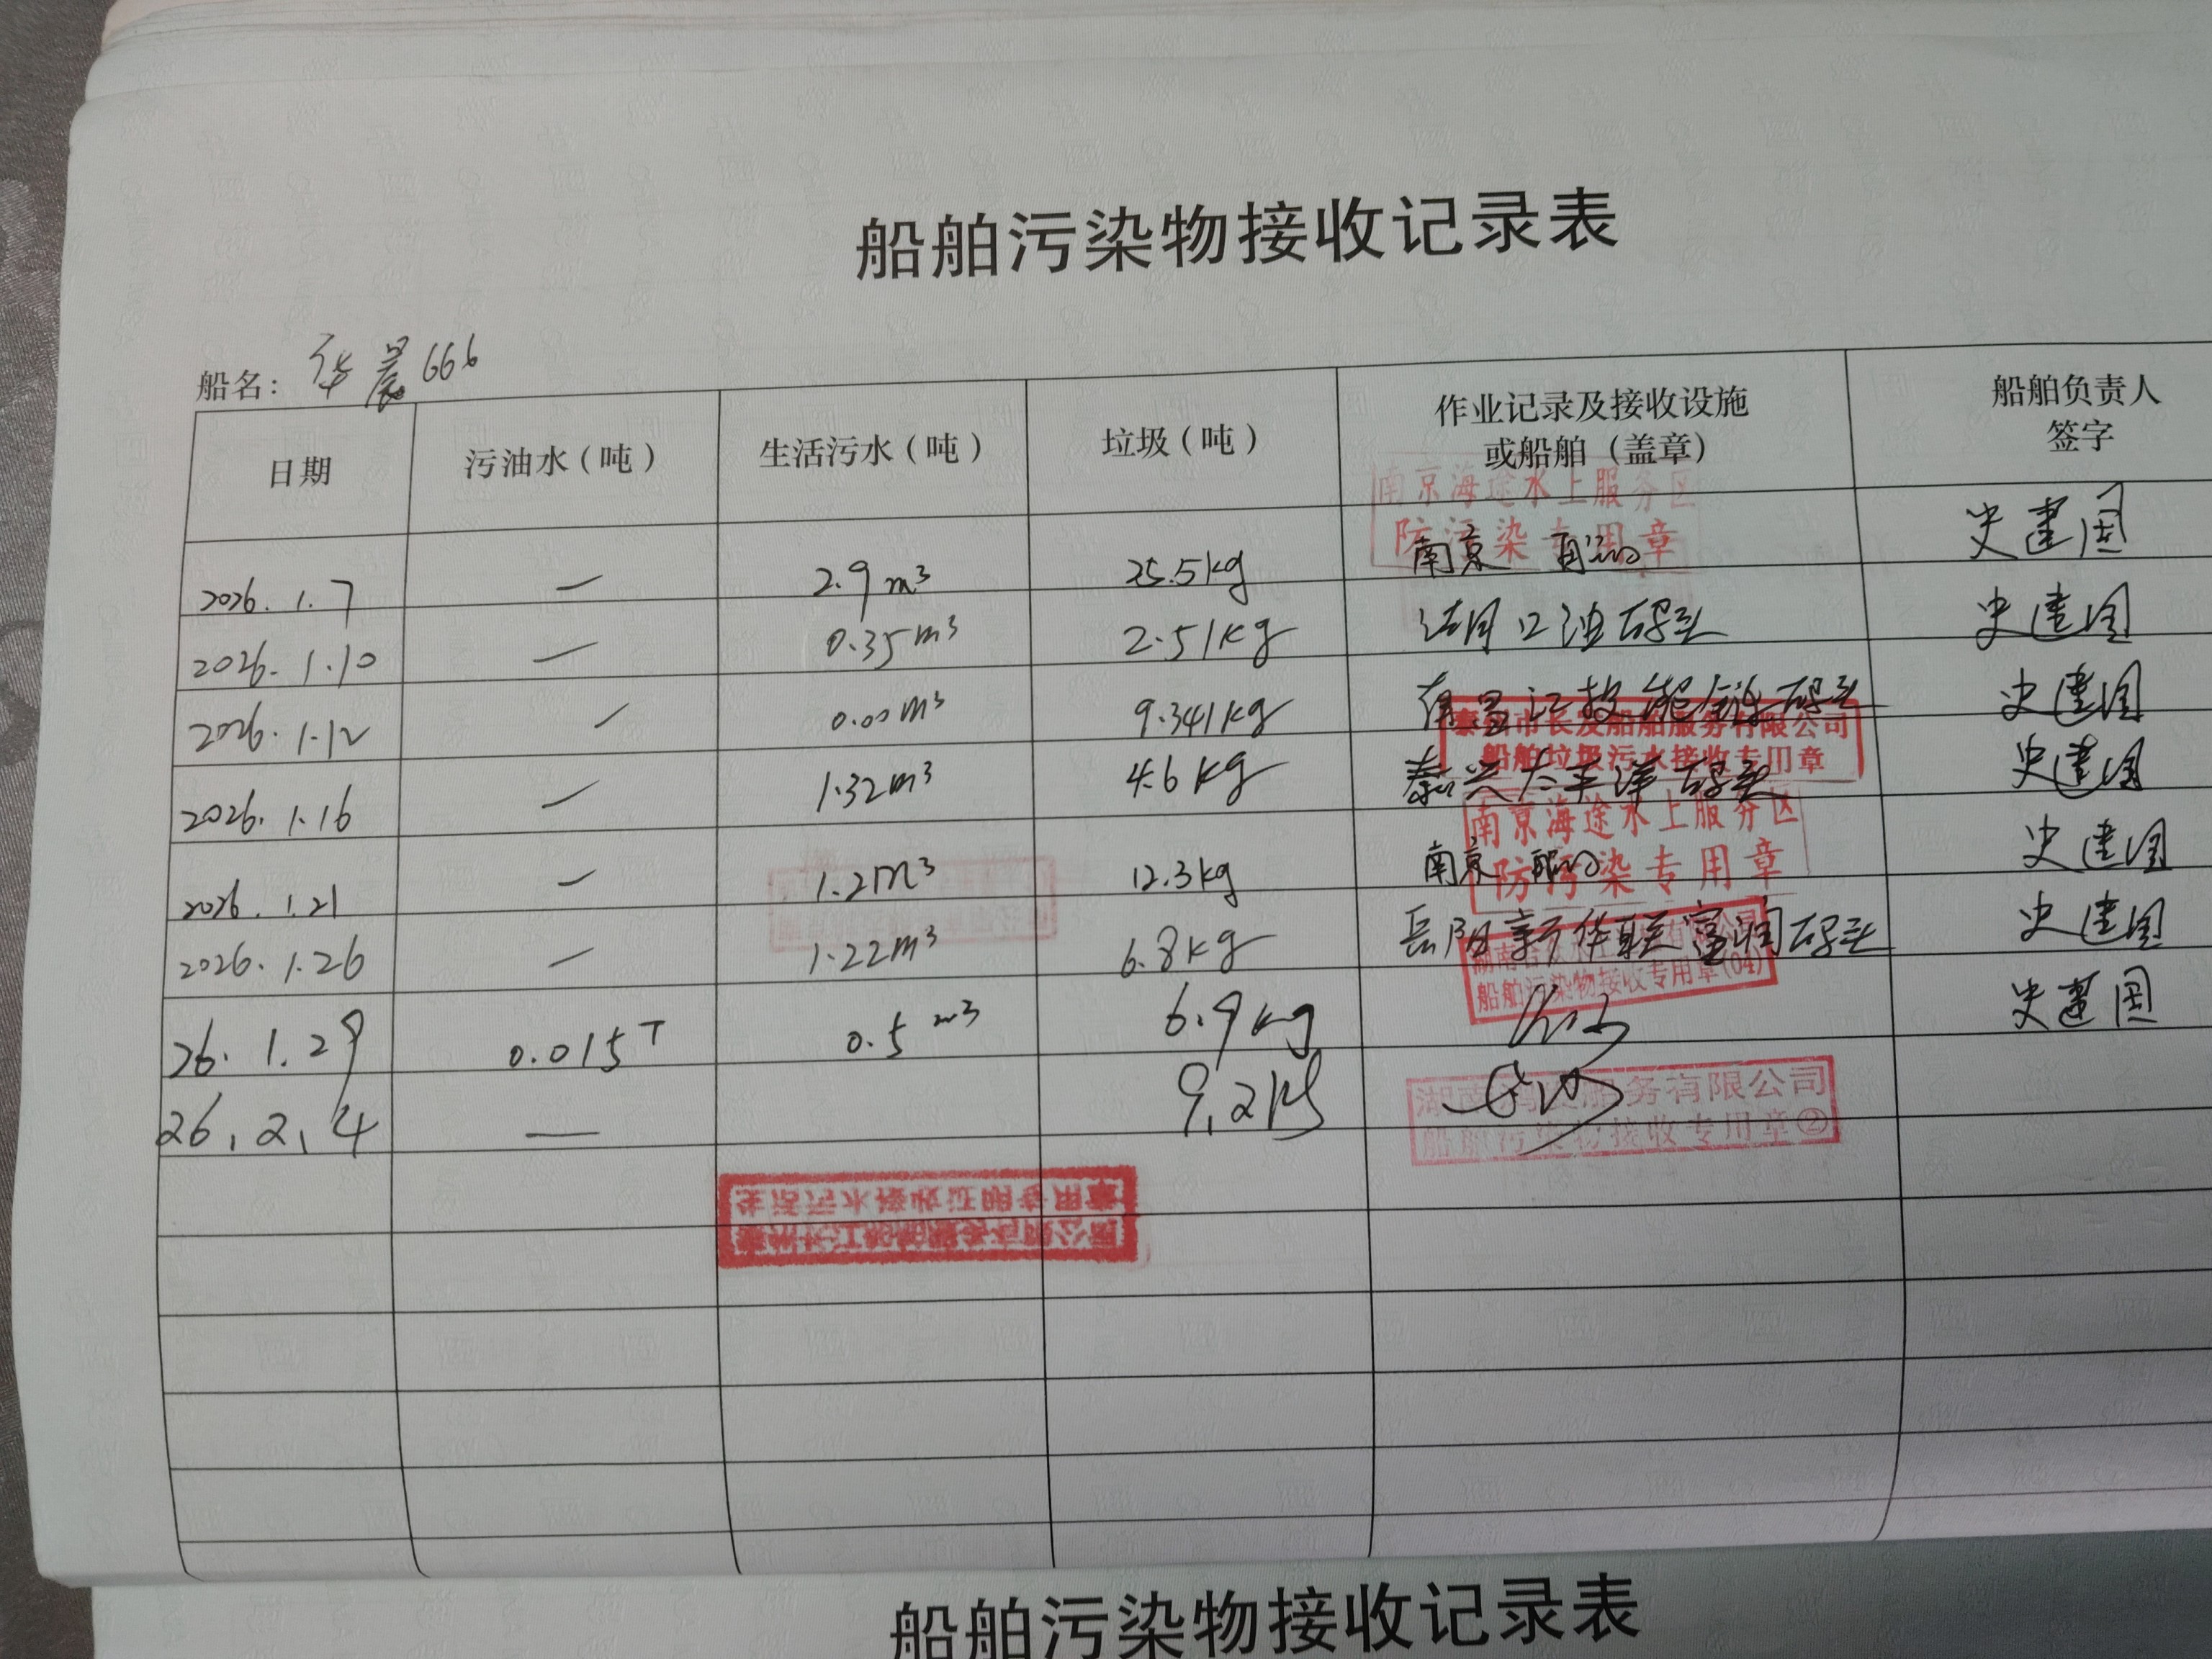 船舶污染物接收记录表
船名: 华晨666
日期 污油水(吨) 生活污水(吨) 垃圾(吨) 作业记录及接收设施或船舶(盖章) 船舶负责人签字
南京海途水上服务区
防污染专用章
2026.1.7 — 2.9m³ 25.5kg 南京 史建国
2026.1.10 — 0.35m³ 2.51kg 口油码头 史建国
2026.1.12 — 0.00m³ 9.341kg 码头 史建国
泰州市长发船舶服务有限公司
船舶垃圾污水接收专用章
2026.1.16 — 1.32m³ 4.6kg 泰兴太平洋码头 史建国
南京海途水上服务区
防污染专用章
2026.1.21 — 1.2m³ 12.3kg 南京 史建国
2026.1.26 — 1.22m³ 6.8kg 岳阳新华联富润码头 史建国
船舶污染物接收专用章(04)
26.1.29 0.015T 0.5m³ 6.9kg 史建国
26.2.4 — 9.2kg
服务有限公司
船舶污染物接收专用章②
生活污水接收证明专用章
船舶污染物接收记录表